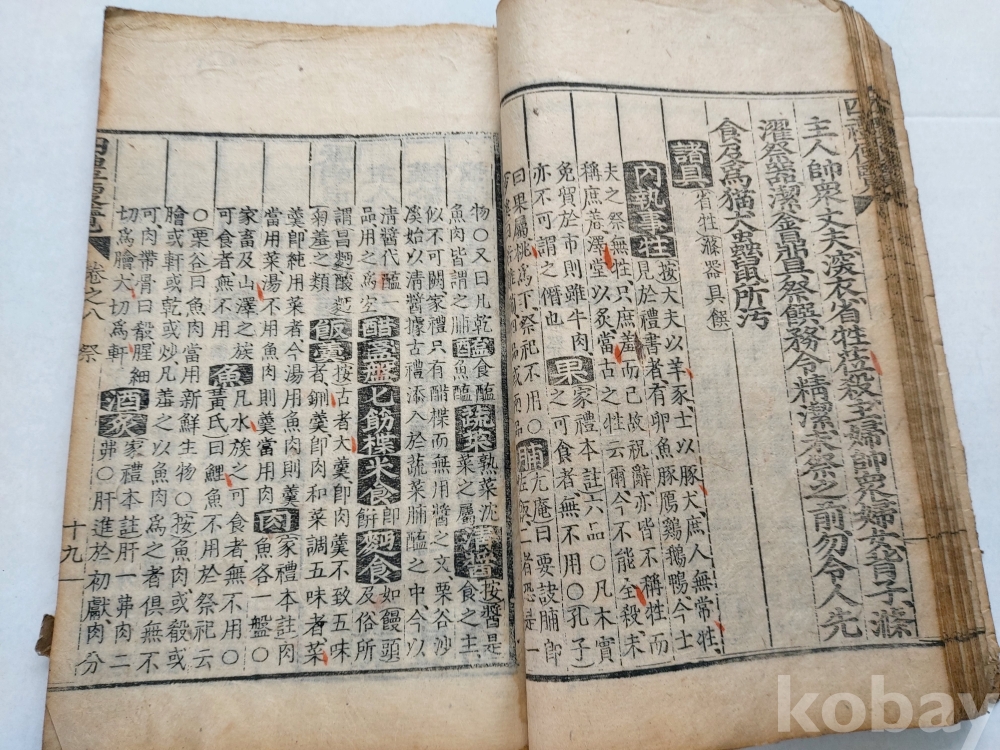 主人帥衆丈夫深衣省牲莅殺主婦帥衆婦女背子滌
濯祭器潔釜鼎具祭饌務令精潔未祭之前勿令人先
食及爲猫犬蟲鼠所汚
諸具 省牲滌器具饌
內執事牲 按大夫以羊豕士以豚犬庶人無常牲
見於禮書者有卵魚豚鴈鷄鵝鴨今士
夫之祭無牲只庶羞而已故祝辭亦皆不稱牲而
稱庶羞澤堂以炙當古之牲云爾今不能主殺未
免貿於市則雖牛肉
亦不可謂之僭也
果 家禮本註六品○凡木實
之可食者無不用○孔子
曰果屬桃爲下祭祀不用○
脯 尤庵曰要訣脯即
佐飯二者恐是一
物○又曰凡乾
魚肉皆謂之脯
醢 食醢
魚醢
蔬菜 熟菜沈
菜之屬
清醬 按醬是
食之主
似不可闕家禮只有醋楪而無設醬之文栗谷沙
溪始以清醬據古禮添入於蔬菜脯醢之中今以
清醬代醢
品用之爲宜
醋 盞盤 匕筯楪 米食 即餠
麪食 如饅頭
及俗所
謂昌麪酸麪
菊羞之類
飯羹 按古者大羹即肉羹不致五味
者鉶羹即肉和菜調五味者菜
羹即純用菜者今湯用魚肉則羹
當用菜湯不用魚肉則羹當用肉
肉 家禮本註肉
魚各一盤○
家畜及山澤之族
可食者無不用
魚 凡水族之可食者無不用○
黃氏曰鯉魚不用於祭祀云
○栗谷曰魚肉當用新鮮生物○按魚肉或殽或
膾或軒或乾或炒凡羞之以魚肉爲之者俱無不
可肉帶骨曰殽腥細
切爲膾大切爲軒
酒炙 家禮本註肝一丳肉二
丳○肝進於初獻肉分
四禮便覽 卷之八 祭 十九
kobay